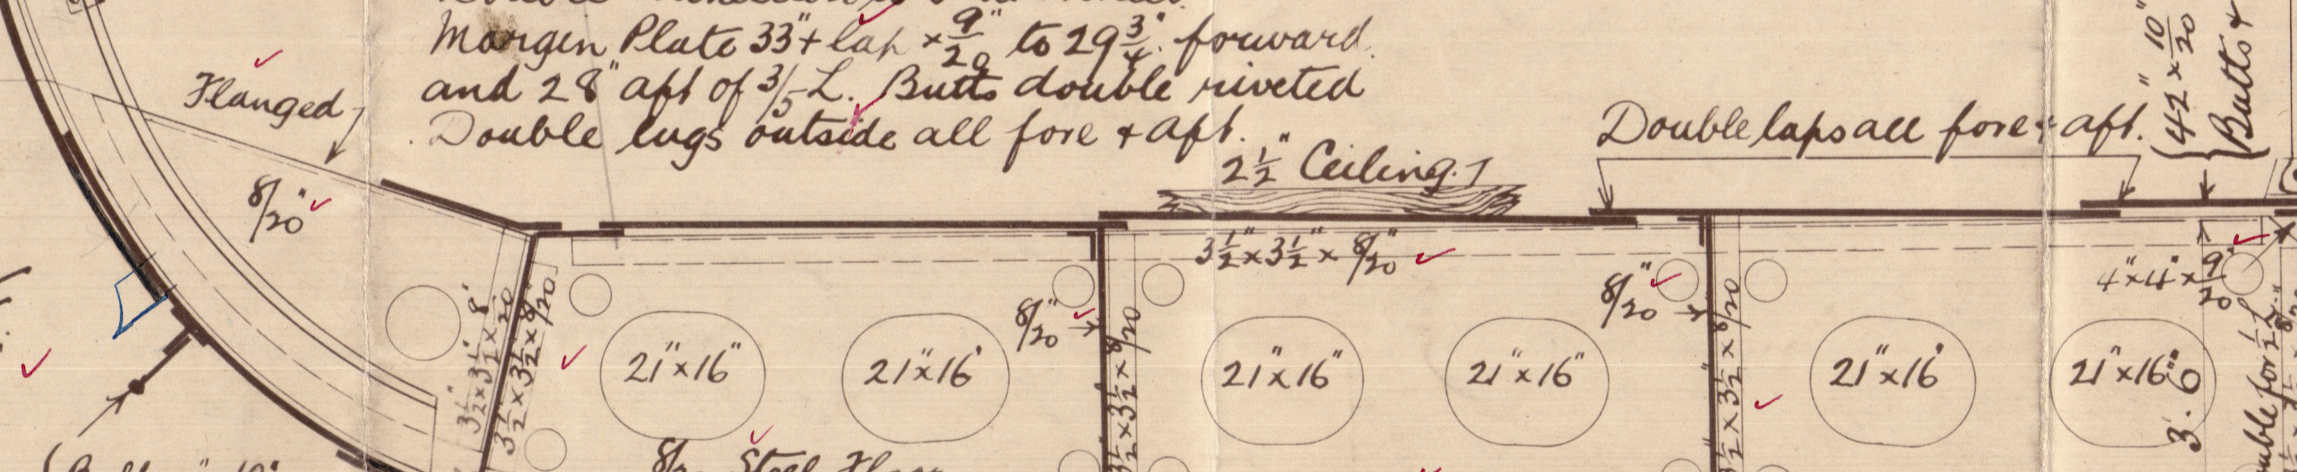 Margin Plate 33" + lap × 9/20" to 29 3/4" forward
and 28" aft of 3/5 L. Butts double riveted
Double lugs outside all fore & aft.
Flanged
8/20"
2 1/2" Ceiling
Double laps all fore & aft.
42" × 10/20"
Butts &
3 1/2" × 3 1/2" × 8/20"
8/20"
8/20"
4" × 4" × 9/20"
3 1/2" × 3 1/2" × 8/20
3 1/2" × 3 1/2" × 8/20
3 1/2" × 3 1/2" × 8/20
1/2" × 3 1/2" × 8/20
21" × 16"
21" × 16"
21" × 16"
21" × 16"
21" × 16"
21" × 16"
3.6"
for 1/2 L.
Steel Floor